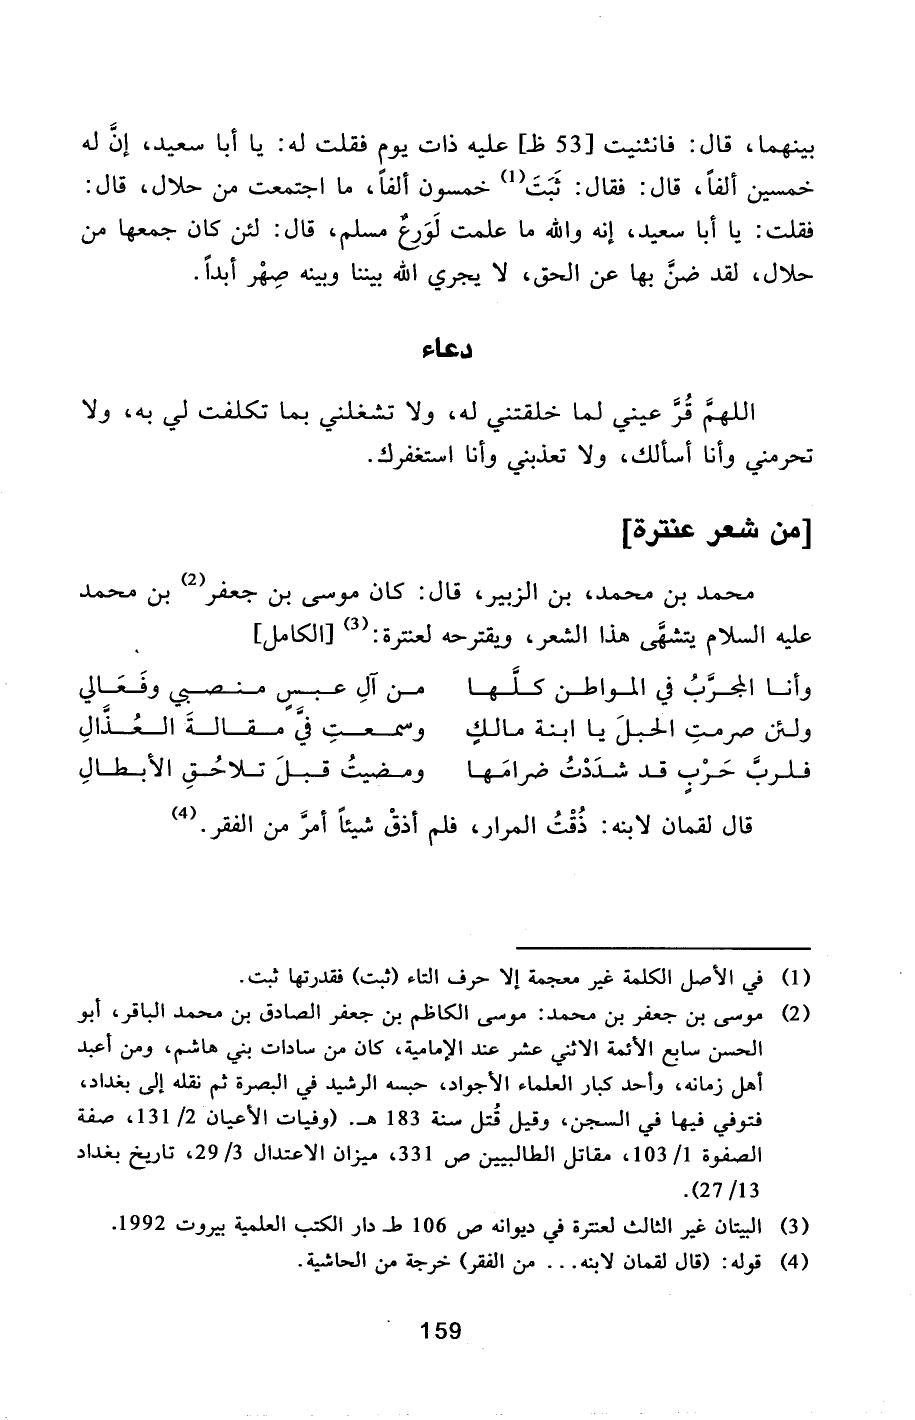 بينهما، قال: فانثنيت [53 ظ] عليه ذات يوم فقلت له: يا أبا سعيد، إنَّ له
خمسين ألفاً، قال: فقال: ثَبَتَ(1) خمسون ألفاً، ما اجتمعت من حلال، قال:
فقلت: يا أبا سعيد، إنه والله ما علمت لَوَرِعٌ مسلم، قال: لئن كان جمعها من
حلال، لقد ضنَّ بها عن الحق، لا يجري الله بيننا وبينه صِهْر أبداً.
دعاء
اللهمَّ قُرَّ عيني لما خلقتني له، ولا تشغلني بما تكلفت لي به، ولا
تحرمني وأنا أسألك، ولا تعذبني وأنا استغفرك.
[من شعر عنترة]
محمد بن محمد، بن الزبير، قال: كان موسى بن جعفر(2) بن محمد
عليه السلام يتشهَّى هذا الشعر، ويقترحه لعنترة:(3) [الكامل]
وأنـا المجـرَّبُ في المـواطـن كـلَّـهـا مـن آلِ عـبـسٍ مـنـصـبـي وفَـعَـالي
ولـئن صرمـتِ الحبـلَ يـا ابـنـة مـالـكٍ وسمـعـتِ فيَّ مـقـالـةَ الـعُـذَّالِ
فـلـربَّ حَـرْبٍ قـد شـدَدْتُ ضرامَـهـا ومـضـيـتُ قـبـلَ تـلاحُـقِ الأبـطـالِ
قال لقمان لابنه: ذُقْتُ المرار، فلم أذقْ شيئاً أمرَّ من الفقر.(4)
(1) في الأصل الكلمة غير معجمة إلا حرف التاء (ثبت) فقدرتها ثبت.
(2) موسى بن جعفر بن محمد: موسى الكاظم بن جعفر الصادق بن محمد الباقر، أبو
الحسن سابع الأئمة الاثني عشر عند الإمامية، كان من سادات بني هاشم، ومن أعبد
أهل زمانه، وأحد كبار العلماء الأجواد، حبسه الرشيد في البصرة ثم نقله إلى بغداد،
فتوفي فيها في السجن، وقيل قُتل سنة 183 هـ. (وفيات الأعيان 2/ 131، صفة
الصفوة 1/ 103، مقاتل الطالبيين ص 331، ميزان الاعتدال 3/ 29، تاريخ بغداد
13/ 27).
(3) البيتان غير الثالث لعنترة في ديوانه ص 106 طـ دار الكتب العلمية بيروت 1992.
(4) قوله: (قال لقمان لابنه... من الفقر) خرجة من الحاشية.
159